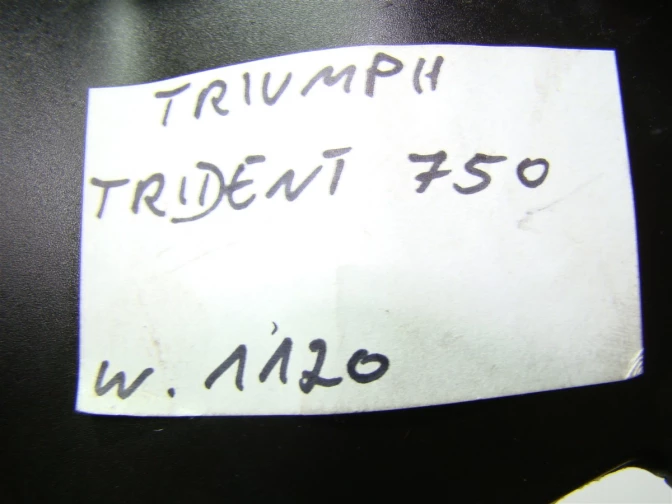 TRIUMPH
TRIDENT 750
W. 1120